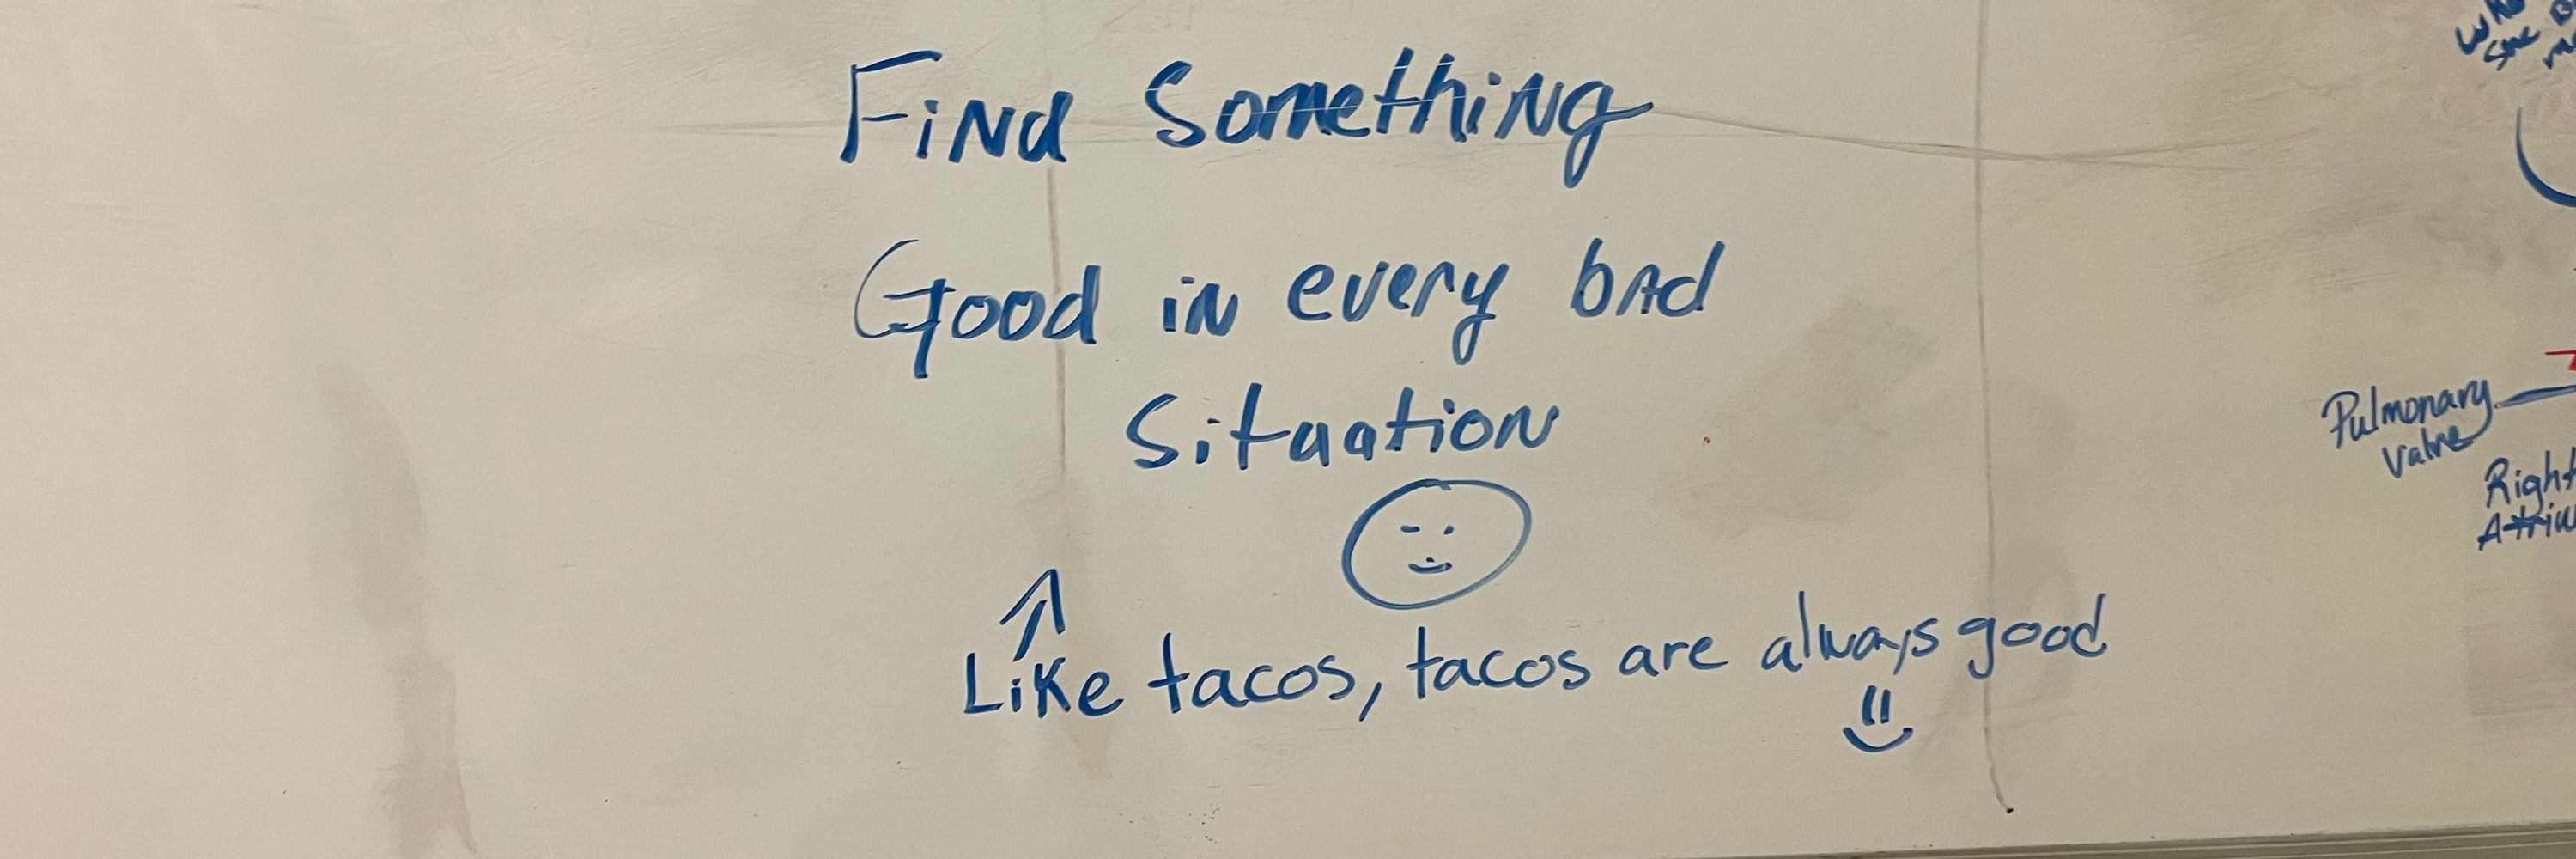 Find Something
Good in every bad
Situation
Like tacos, tacos are always good
Pulmonary
Valve
Right